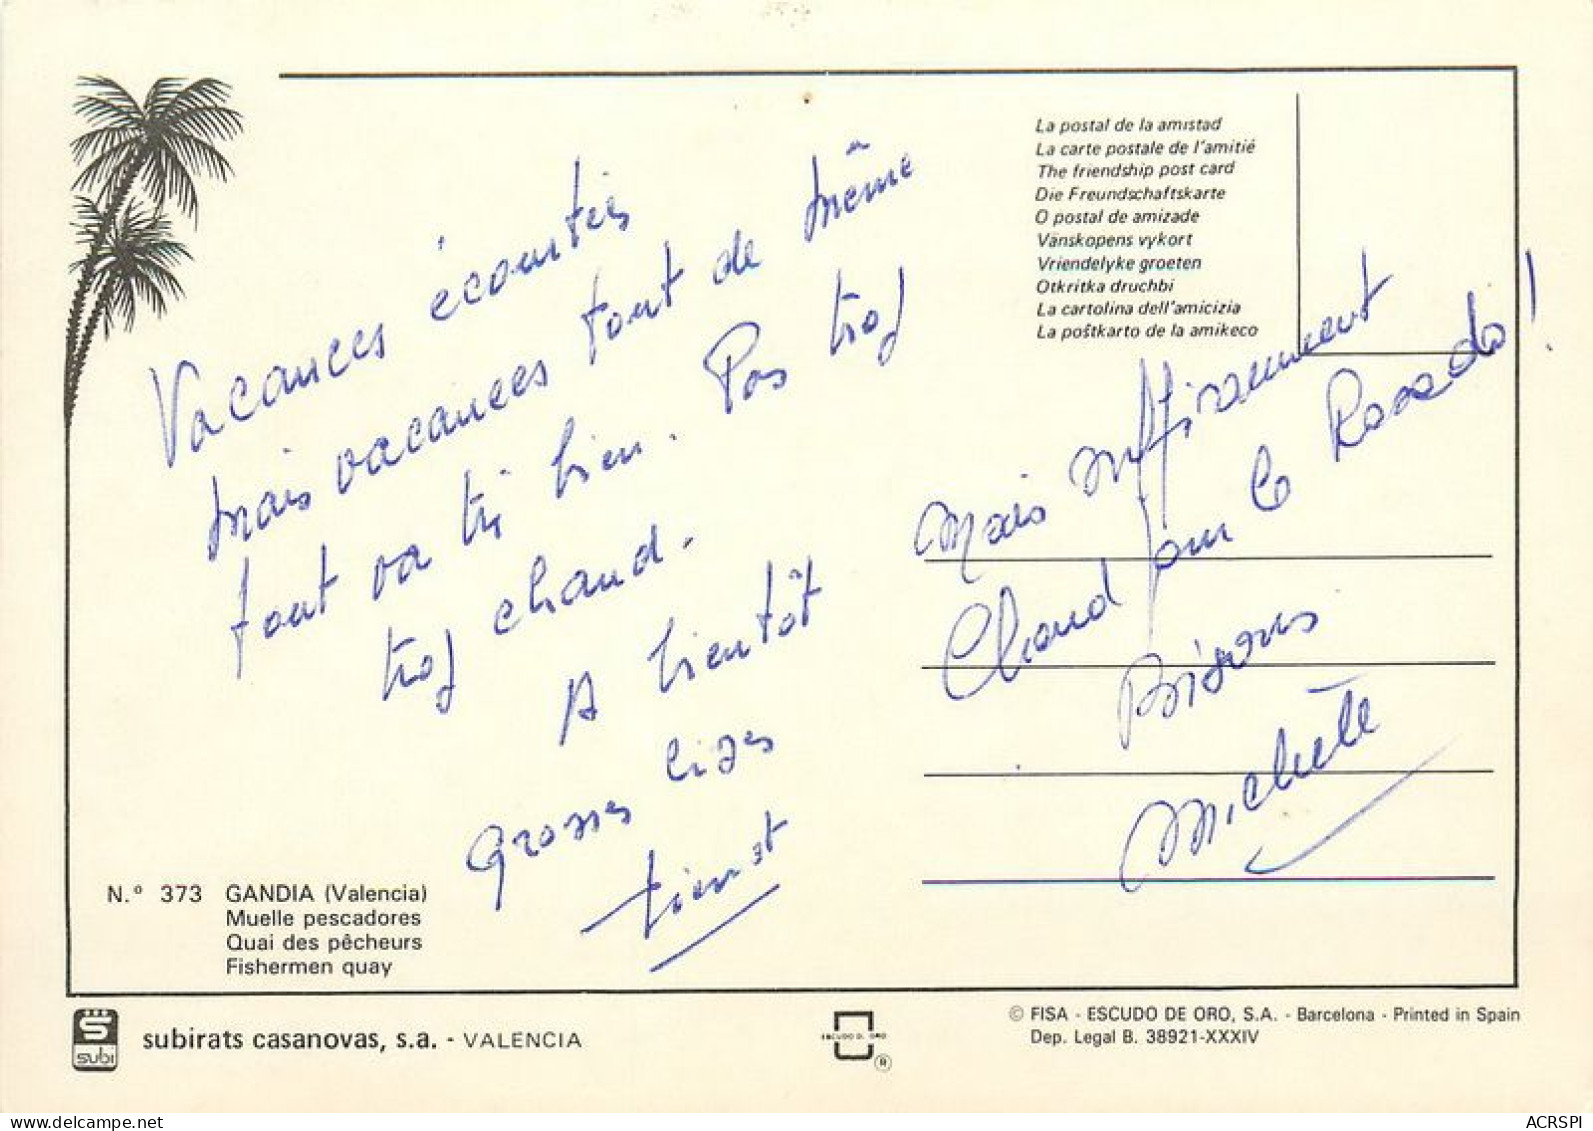 La postal de la amistad
La carte postale de l'amitié
The friendship post card
Die Freundschaftskarte
O postal de amizade
Vänskopens vykort
Vriendelyke groeten
Otkritka druchbi
La cartolina dell'amicizia
La poŝtkarto de la amikeco
Vacances écourtées
mais vacances tout de même
tout va très bien. Pas trop
trop chaud.
A bientôt
Grosses bises
Mais suffisamment
Chaud pour le Rosado !
Bisous
Michèle
N.º 373 GANDIA (Valencia)
Muelle pescadores
Quai des pêcheurs
Fishermen quay
subi
subirats casanovas, s.a. - VALENCIA
ESCUDO D. ORO
®
© FISA - ESCUDO DE ORO, S.A. - Barcelona - Printed in Spain
Dep. Legal B. 38921-XXXIV
ACRSPI